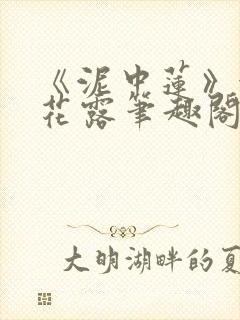 《泥中蓮》
花露筆趣閣
大明湖畔的夏